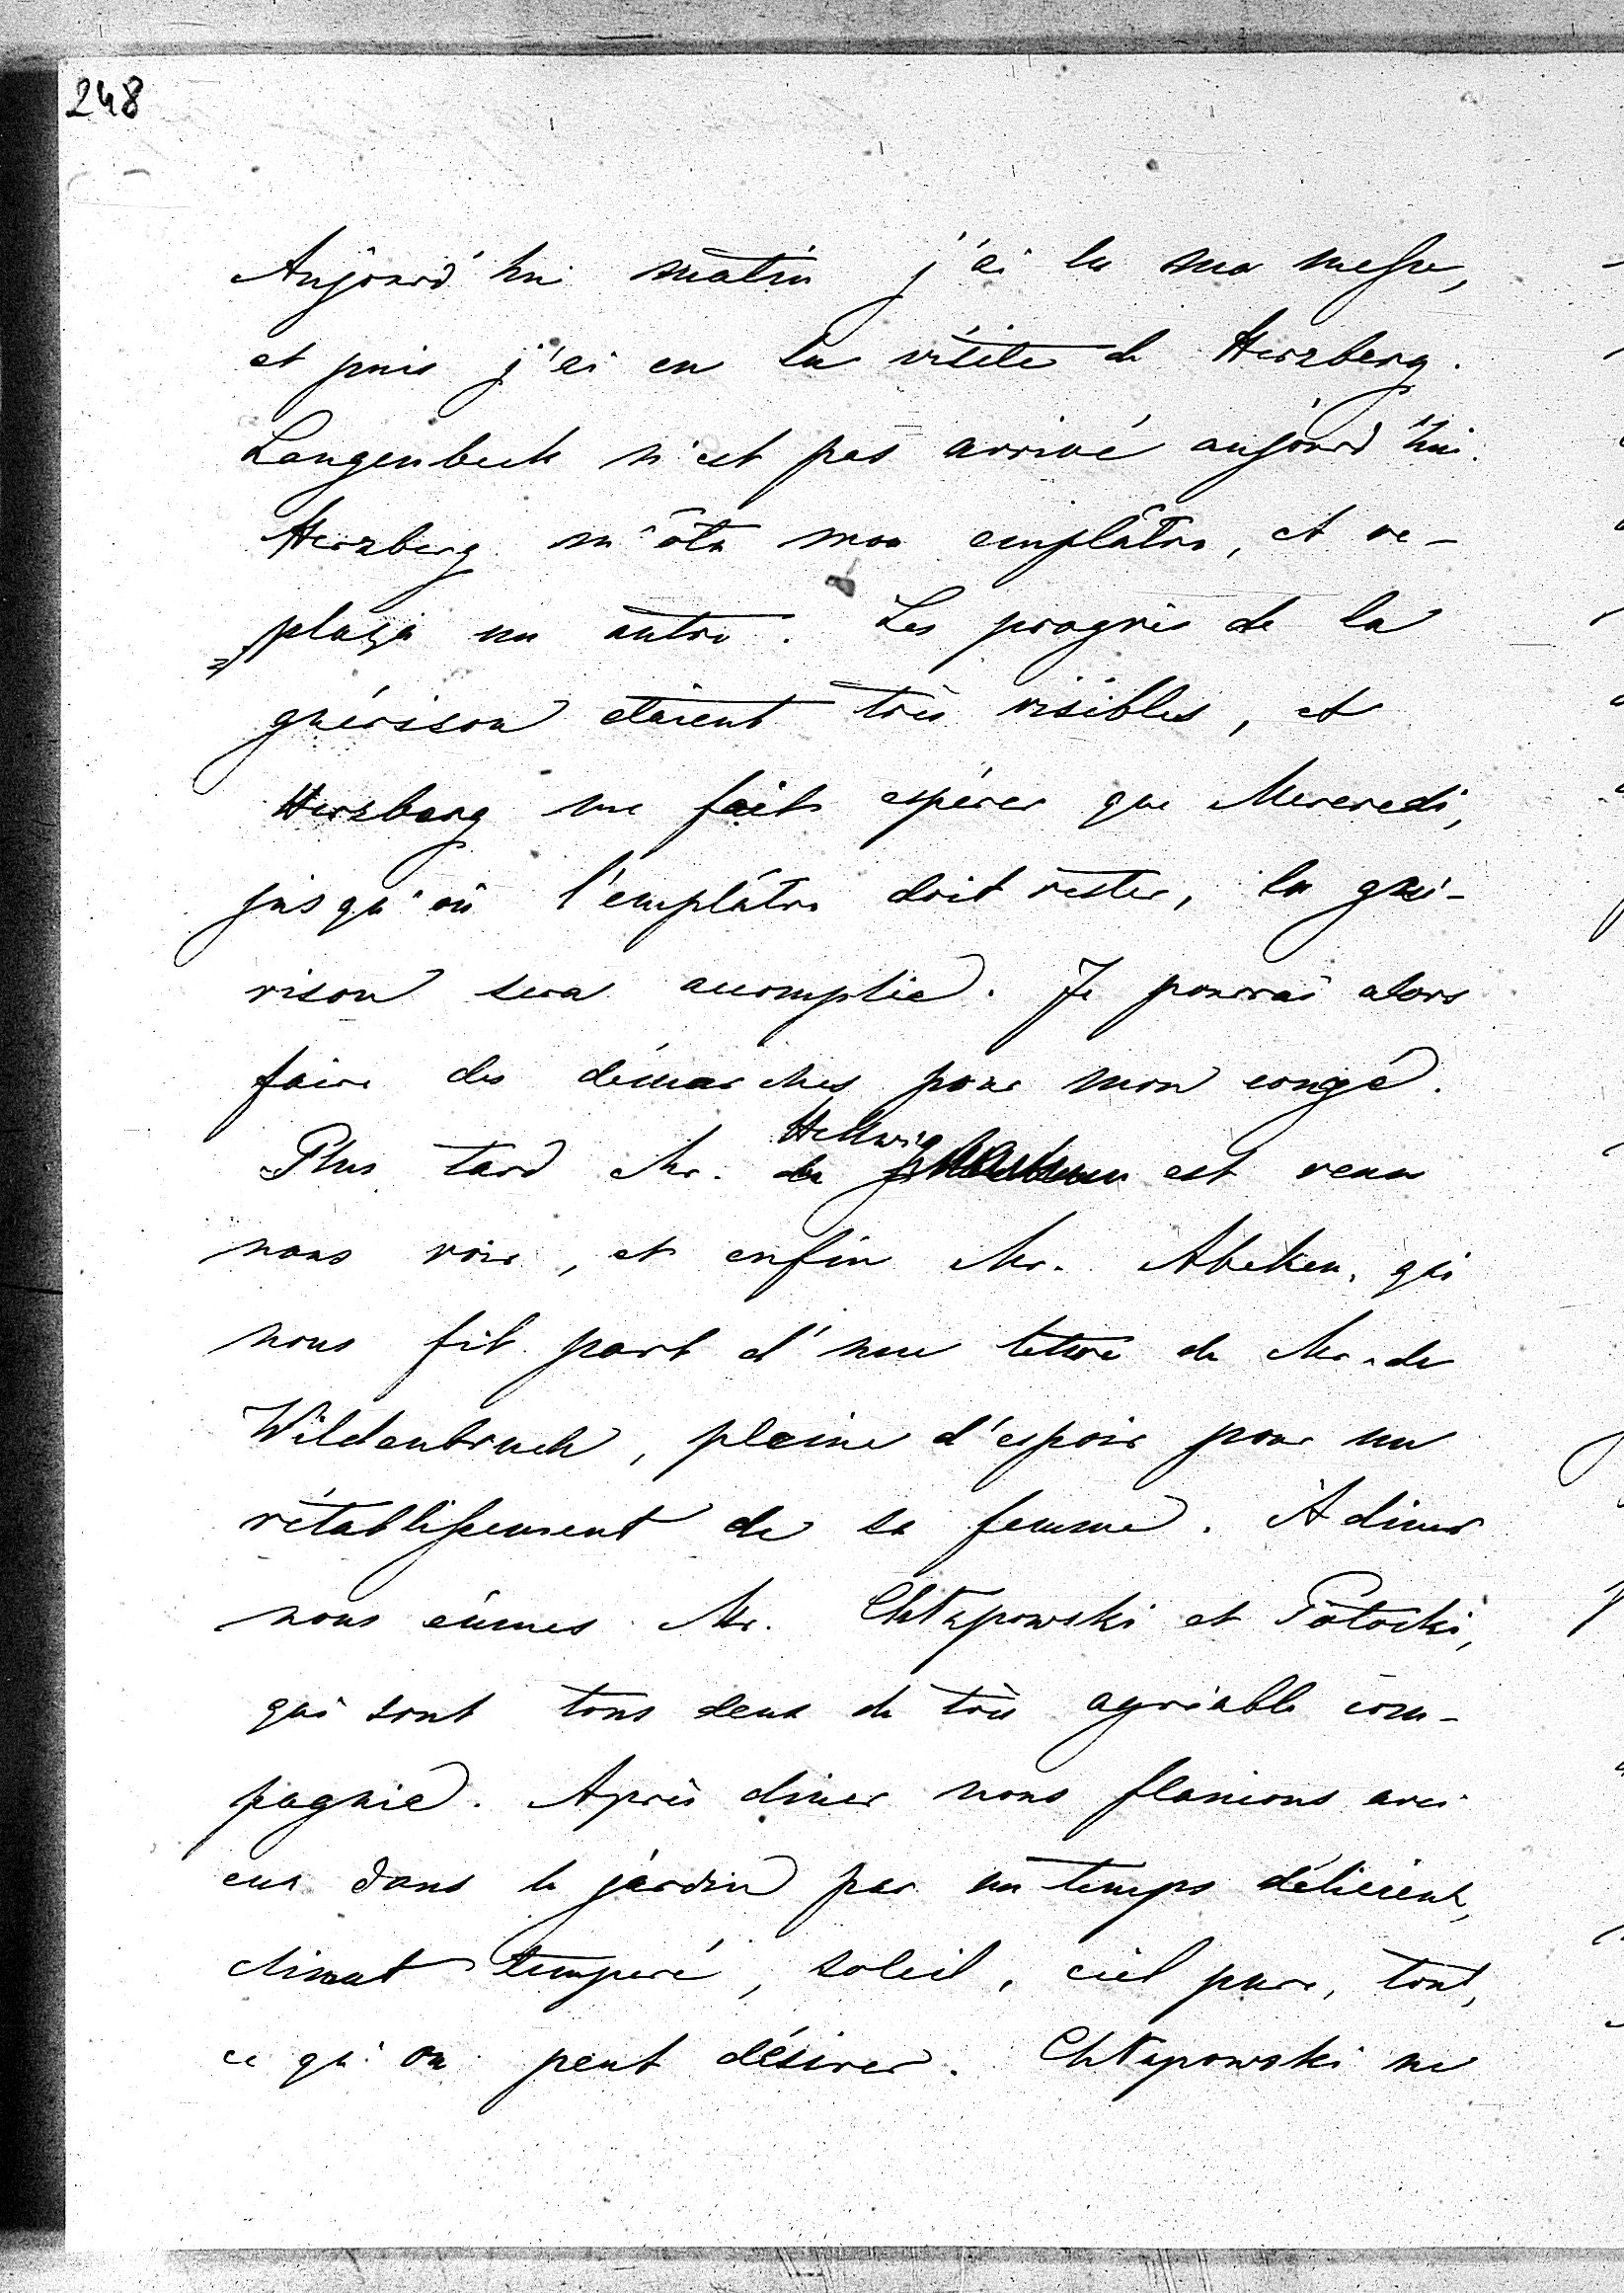 248
Aujourd'hui matin j'ai lu ma messe,
et puis j'ai eu la visite de Herzberg.
Langenbeck n'est pas arrivé aujourd'hui.
Herzberg m'ôta mon emplâtre, et re-
plaça un autre. Les progrès de la
guérison étaient très visibles, et
Herzberg me fait espérer que Mercredi,
jusqu'où l'emplâtre doit rester, la gué-
rison sera accomplie. Je pourrai alors
faire des démarches pour mon congé.
Hellwig
Plus tard Mr. de est venu
nous voir, et enfin Mr. Abeken, qui
nous fit part d'une lettre de Mr. de
Wildenbruch, pleine d'espoir pour un
rétablissement de sa femme. A diner
nous eûmes Mr. Chłapowski et Potocki,
qui sont tous deux de très agréable com-
pagnie. Après diner nous flanions avec
eux dans le jardin par un temps délicieux,
climat temperé, soleil, ciel pure, tout,
ce qu'on peut désirer. Chłapowski me